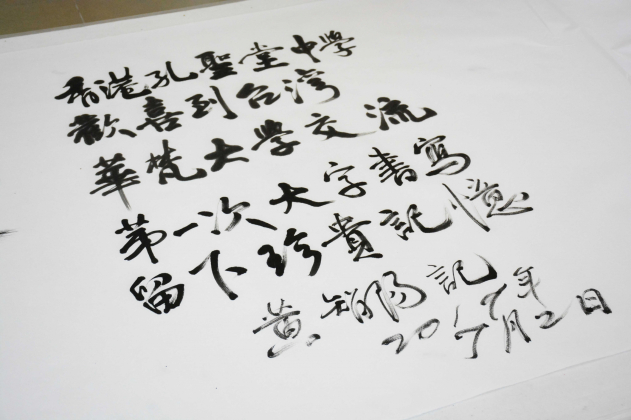 香港孔聖堂中學
歡喜到台灣
華梵大學交流
第一次大字書寫
留下珍貴記憶
黃智陽記
2019年
7月2日